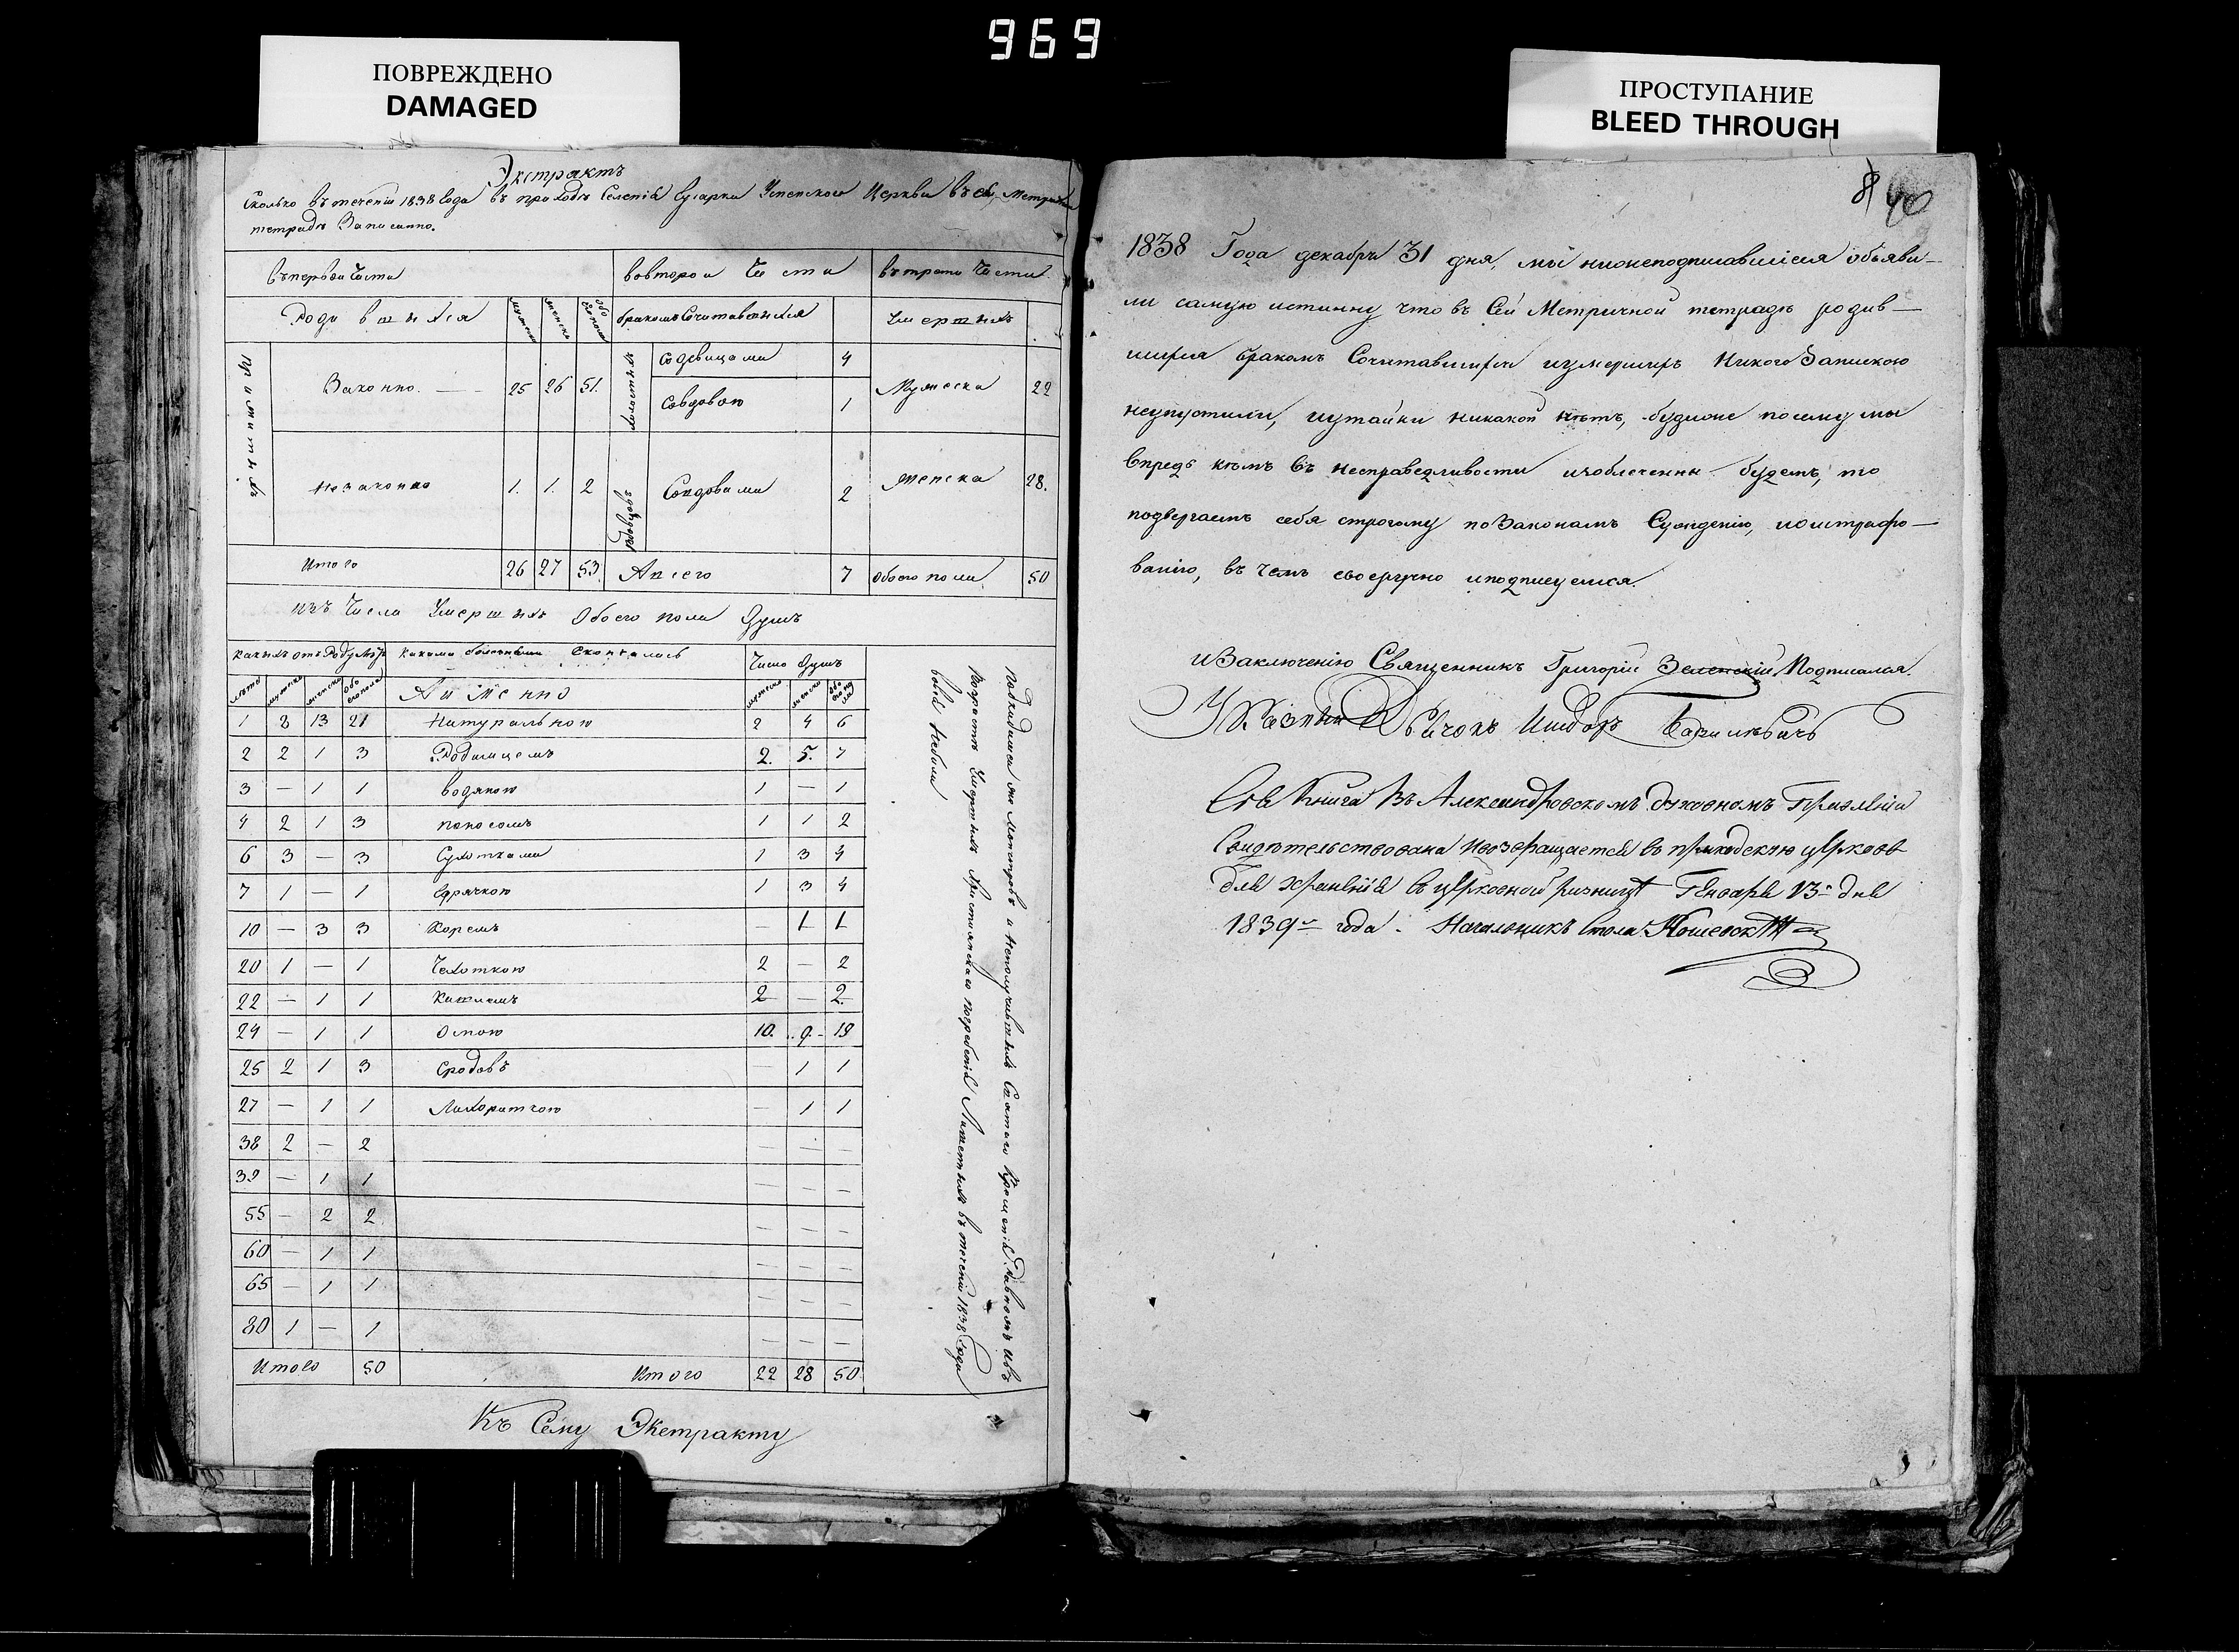 969
ПОВРЕЖДЕНО
DAMAGED
ПРОСТУПАНИЕ
BLEED THROUGH
Экстрактъ
Сколько въ теченіи 1838 Года въ приходѣ Селенія Успенской Церкви въ сей
тетрадѣ Записанно.
въ первой Части
во второй Части
въ трети Части
Родившихся
мужеска
женска
обоего пола
бракомъ Сочитавшихся
Умершихъ
Законно
25 26 51.
Содевицами
4
Совдовою
1
Мужеска
22
Незаконно
1. 1. 2
вдовцовъ
Совдовами
2
Женска
28.
Итого
26 27 53.
Авсего
7
Обоего пола
50
изъ Числа Умершихъ Обоего пола Душъ
Какихъ отъ Роду лѣтъ
Какими болезньми скончались
Число душъ
лѣта
мужеска
женска
обоего пола
Аименно
мужеска
женска
обоего пола
1 8 13 21 Натуральною 2 4 6
2 2 1 3 Родимцемъ 2. 5. 7
3 — 1 1 Водяною 1 — 1
4 2 1 3 поносомъ 1 1 2
6 3 — 3 Сухотками 1 3 4
7 1 — 1 Горячкою 1 3 4
10 — 3 3 Коремъ — 1 1
20 1 — 1 Чехоткою 2 — 2
22 — 1 1 Кашлемъ 2 — 2.
24 — 1 1 Оспою 10. 9. 19
25 2 1 3 Сродовъ — 1 1
27 — 1 1 Лихораткою — 1 1
38 2 — 2 — — —
39 — 1 1 — — —
55 — 2 2 — — —
60 — 1 1 — — —
65 — 1 1 — — —
80 1 — 1 — — —
Итого 50 Итого 22 28 50
Къ Сему Экстракту
40
1838 Года декабря 31 дня, мы нижеподписавшіеся объяви—
ли самую истинну что въ Сей Метричной тетрадѣ родив—
шихся бракомъ Сочитавшихся иумершихъ Никого Запискою
неупустили, иутайки никакой нѣтъ, будиже посему мы
впредь кѣмъ въ несправедливости изобличенны будемъ, то
подвергаемъ себя строгому поЗаконамъ Сужденію, иоштрафо—
ванію, въ чемъ своеручно иподписуемся.
иЗаключенію Священникъ Григорій Зеленскій Подписался.
Указный Дьячокъ Исидоръ Василевичъ
Сія Книга Въ Александровскомъ духовномъ Правленіи
Свидѣтельствована Ивозвращается въ приходскую церковь
для храненія въ церковной ризницѣ Генваря 13 дня
1839 года. Начальникъ Стола